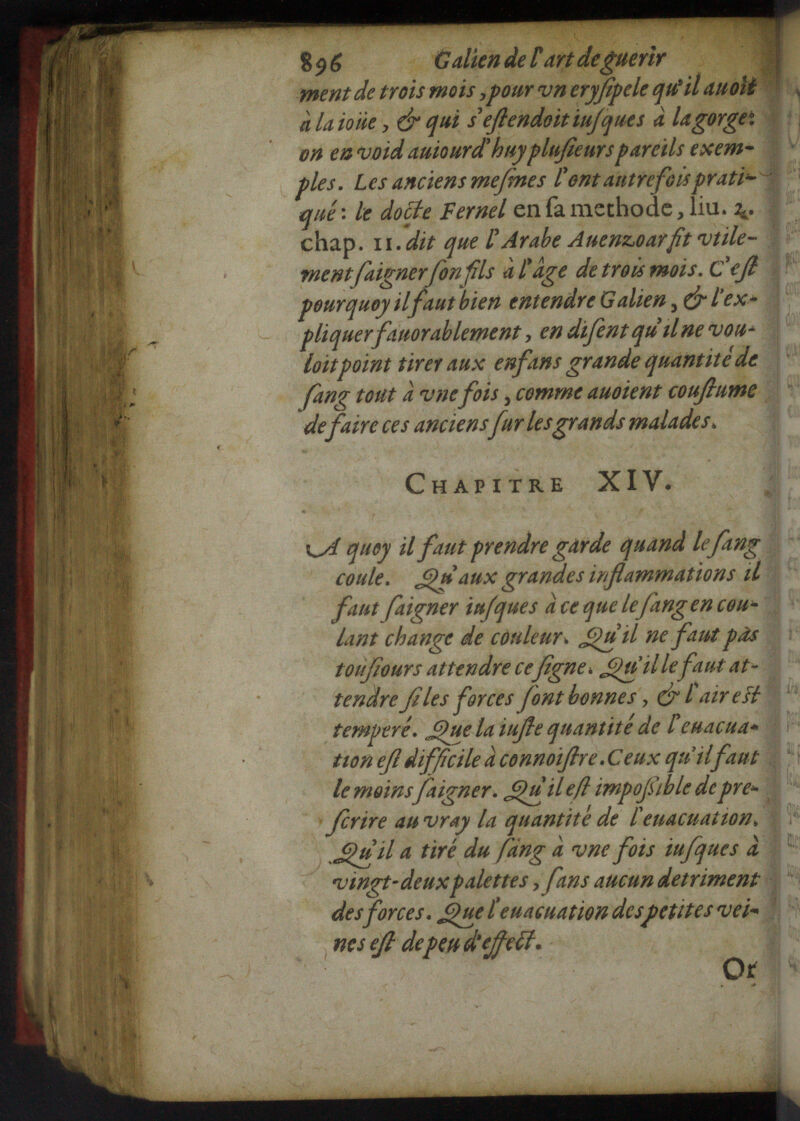 896 Galien de l'art de guerir
ment de trois mois, pour vn eryſipele qu'il auoit
à la ioüe, & qui s'eſtendoit iuſques à la gorge:
on en void auiourd'huy pluſieurs pareils exem-
ples. Les anciens meſmes l'ont autrefois prati-
qué: le docte Fernel en ſa methode, liu. 2.
chap. 11. dit que l'Arabe Auenzoar fit vtile-
ment ſaigner ſon fils à l'âge de trois mois. C'eſt
pourquoy il faut bien entendre Galien, & l'ex-
pliquer fauorablement, en diſent qu'il ne vou-
loit point tirer aux enfans grande quantité de
ſang tout à vne fois, comme auoient couſtume
de faire ces anciens ſur les grands malades.
CHAPITRE XIV.
A quoy il faut prendre garde quand le ſang
coule. Qu'aux grandes inflammations il
faut ſaigner iuſques à ce que le ſang en cou-
lant change de couleur. Qu'il ne faut pas
touſiours attendre ce ſigne. Qu'il le faut at-
tendre ſi les forces ſont bonnes, & l'air eſt
temperé. Que la iuſte quantité de l'euacua-
tion eſt difficile à connoiſtre. Ceux qu'il faut
le moins ſaigner. Qu'il eſt impoſſible de pre-
ſcrire au vray la quantité de l'euacuation.
Qu'il a tiré du ſang à vne fois iuſques à
vingt-deux palettes, ſans aucun detriment
des forces. Que l'euacuation des petites vei-
nes eſt de peu d'effect.
Or